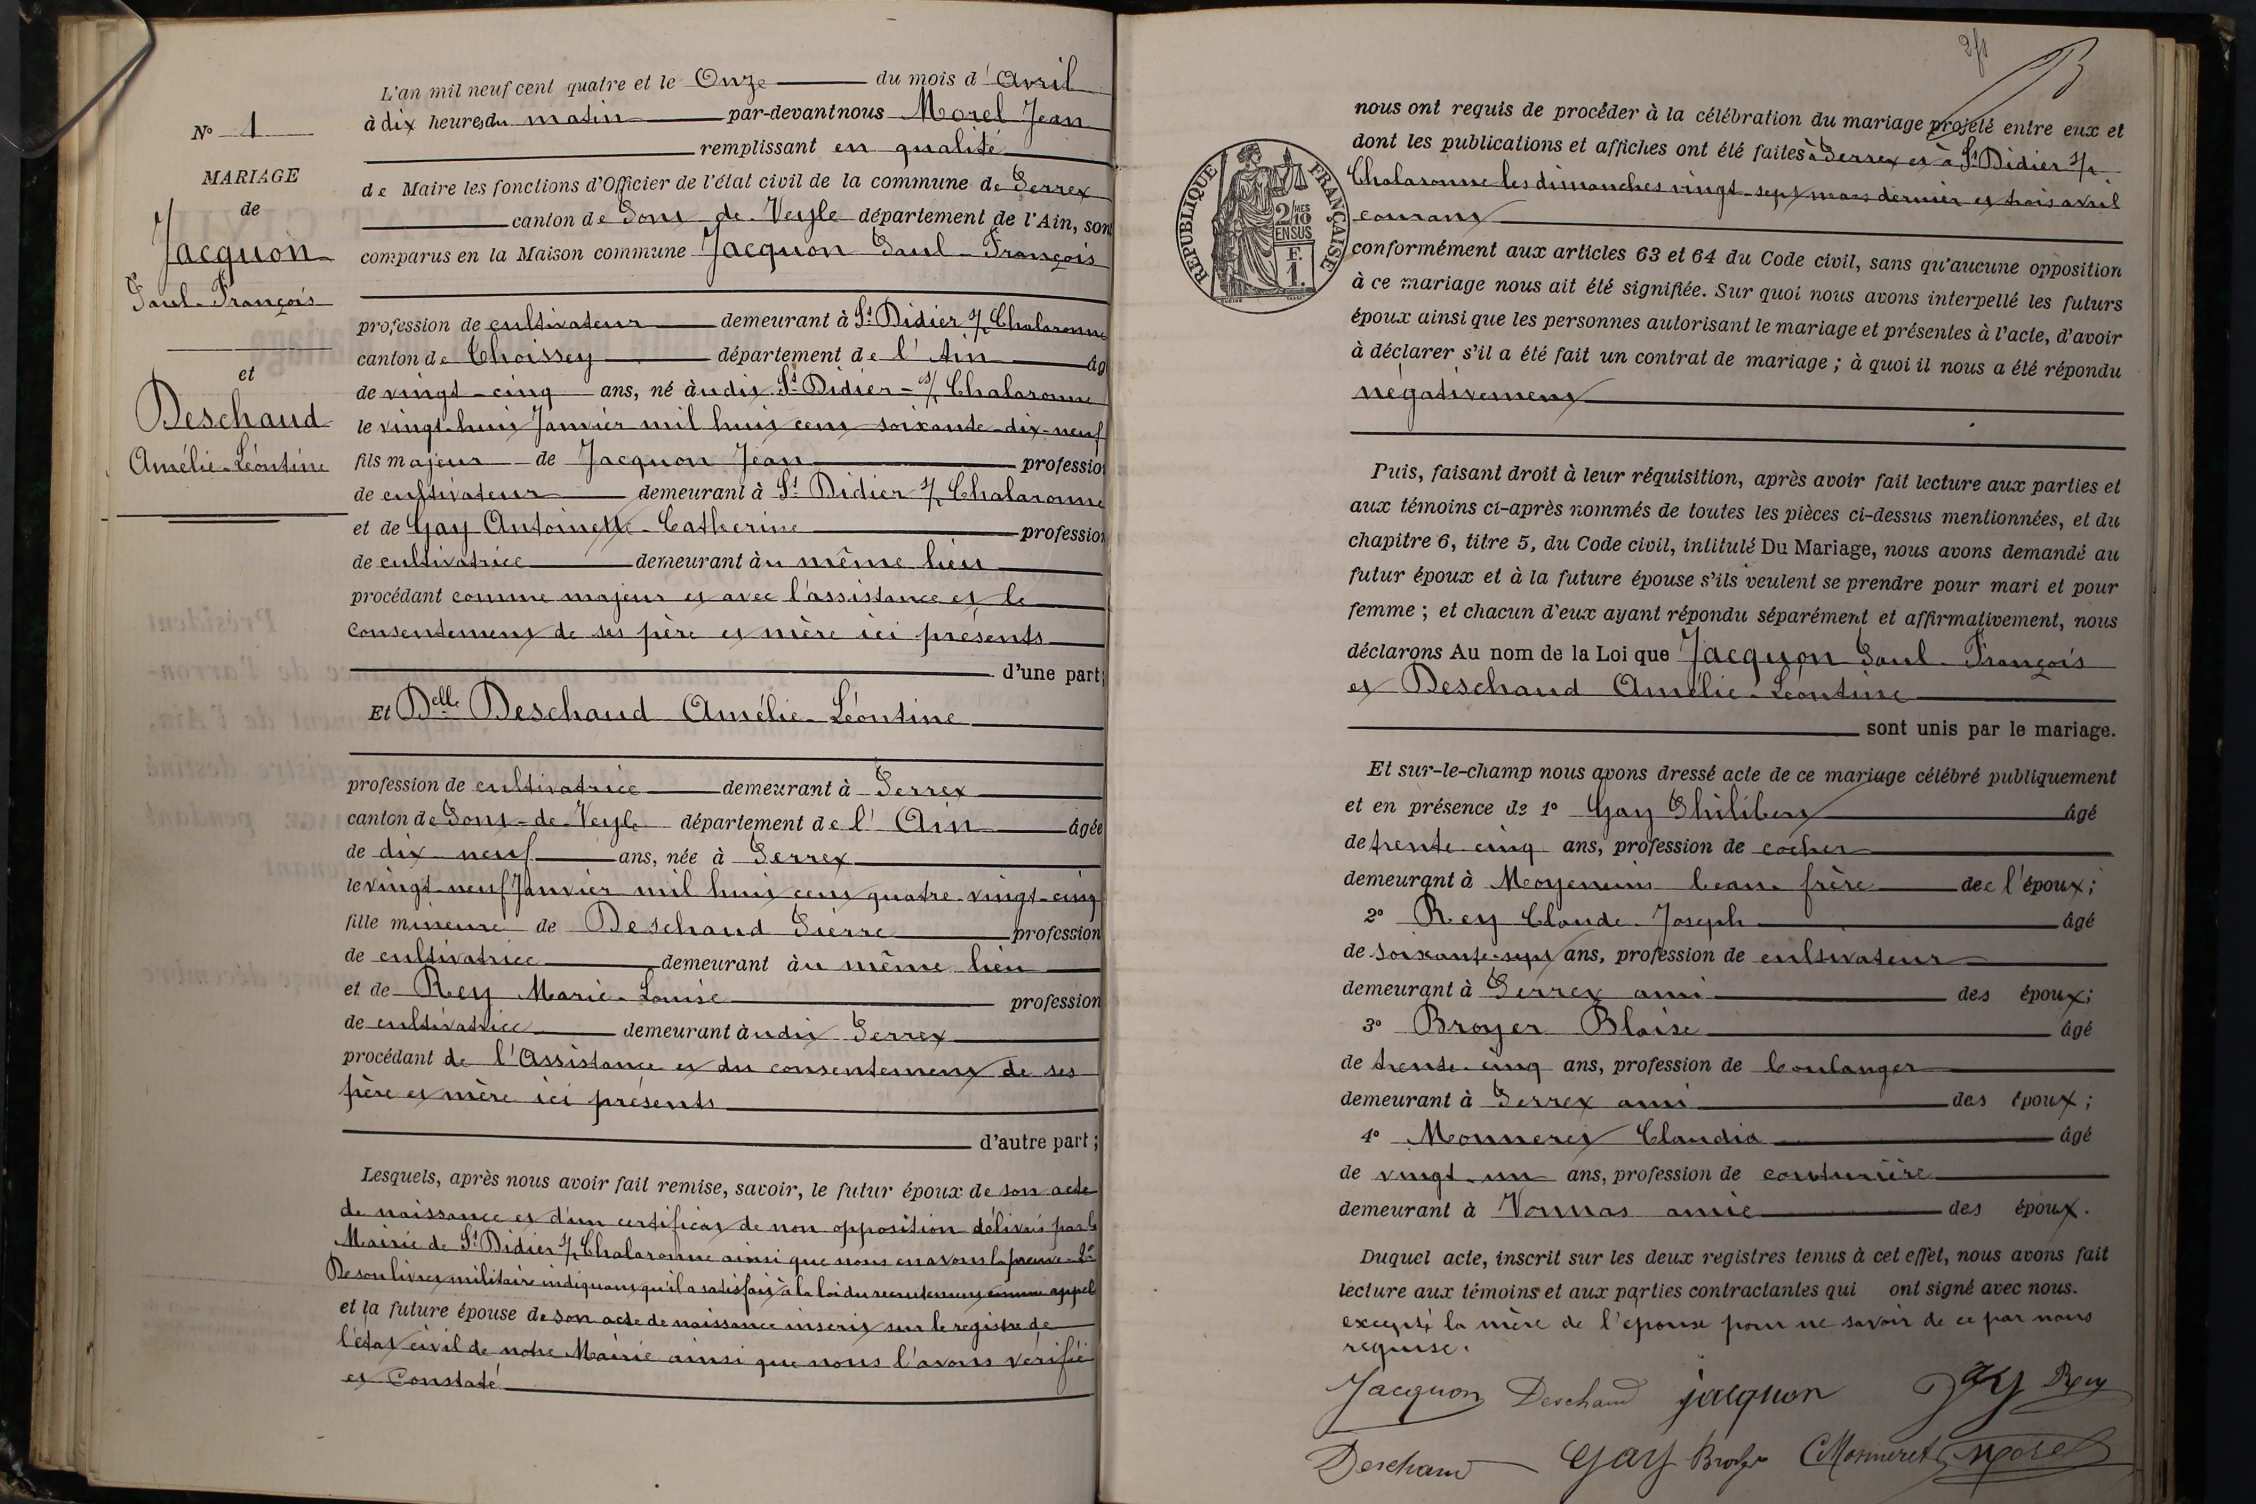 N° 1
MARIAGE
de
Jacquon
Paul-François
et
Deschaud
Amélie-Léontine
L'an mil neuf cent quatre et le Onze du mois d'Avril
à dix heures du matin par-devant nous Morel Jean
remplissant en qualité
de Maire les fonctions d'Officier de l'état civil de la commune de Perrex
canton de Pont-de-Veyle département de l'Ain, sont
comparus en la Maison commune Jacquon Paul-François
profession de cultivateur demeurant à St Didier s/ Chalaronne
canton de Thoissey département de l'Ain âg
de vingt-cinq ans, né àudit St Didier-s/ Chalaronne
le vingt-huit Janvier mil huit cent soixante-dix-neuf
fils majeur de Jacquon Jean profession
de cultivateur demeurant à St Didier s/ Chalaronne
et de Gay Antoinette-Catherine profession
de cultivatrice demeurant àu même lieu
procédant comme majeur et avec l'assistance et le
consentement de ses père et mère ici présents
d'une part;
Et Delle Deschaud Amélie-Léontine
profession de cultivatrice demeurant à Perrex
canton de Pont-de-Veyle département de l'Ain âgée
de dix-neuf ans, née à Perrex
le vingt-neuf Janvier mil huit cent quatre-vingt-cinq
fille mineure de Deschaud Pierre profession
de cultivatrice demeurant àu même lieu
et de Rey Marie-Louise profession
de cultivatrice demeurant àudit Perrex
procédant de l'Assistance et du consentement de ses
père et mère ici présents
d'autre part;
Lesquels, après nous avoir fait remise, savoir, le futur époux de son acte
de naissance et d'un certificat de non opposition délivrés par la
Mairie de St Didier s/ Chalaronne ainsi que nous en avons la preuve. 2°
De son livret militaire indiquant qu'il a satisfait à la loi du recrutement comme appelé
et la future épouse de son acte de naissance inscrit sur le registre de
l'état civil de notre Mairie ainsi que nous l'avons vérifié
et Constaté
nous ont requis de procéder à la célébration du mariage projeté entre eux et
dont les publications et affiches ont été faites à Perrex et à St Didier s/
Chalaronne les dimanches vingt-sept mars dernier et trois avril
courant
RÉPUBLIQUE FRANÇAISE
2/10 MES
EN SUS
F.
1.
conformément aux articles 63 et 64 du Code civil, sans qu'aucune opposition
à ce mariage nous ait été signifiée. Sur quoi nous avons interpellé les futurs
époux ainsi que les personnes autorisant le mariage et présentes à l'acte, d'avoir
à déclarer s'il a été fait un contrat de mariage; à quoi il nous a été répondu
négativement
Puis, faisant droit à leur réquisition, après avoir fait lecture aux parties et
aux témoins ci-après nommés de toutes les pièces ci-dessus mentionnées, et du
chapitre 6, titre 5, du Code civil, intitulé Du Mariage, nous avons demandé au
futur époux et à la future épouse s'ils veulent se prendre pour mari et pour
femme; et chacun d'eux ayant répondu séparément et affirmativement, nous
déclarons Au nom de la Loi que Jacquon Paul-François
et Deschaud Amélie-Léontine
sont unis par le mariage.
Et sur-le-champ nous avons dressé acte de ce mariage célébré publiquement
et en présence de 1° Gay Philibert âgé
de trente cinq ans, profession de cocher
demeurant à beau-frère de l'époux;
2° Rey Claude-Joseph âgé
de soixante-sept ans, profession de cultivateur
demeurant à Perrex ami des époux;
3° Broyer Blaise âgé
de trente-cinq ans, profession de boulanger
demeurant à Perrex ami des époux;
4° Monneret Claudia âgé
de vingt-un ans, profession de couturière
demeurant à Vonnas amie des époux.
Duquel acte, inscrit sur les deux registres tenus à cet effet, nous avons fait
lecture aux témoins et aux parties contractantes qui ont signé avec nous.
excepté la mère de l'epouse pour ne savoir de ce par nous
requise.
Jacquon Deschaud jacquon Gay Rey
Deschaud Gay Broyer C Monneret Morel